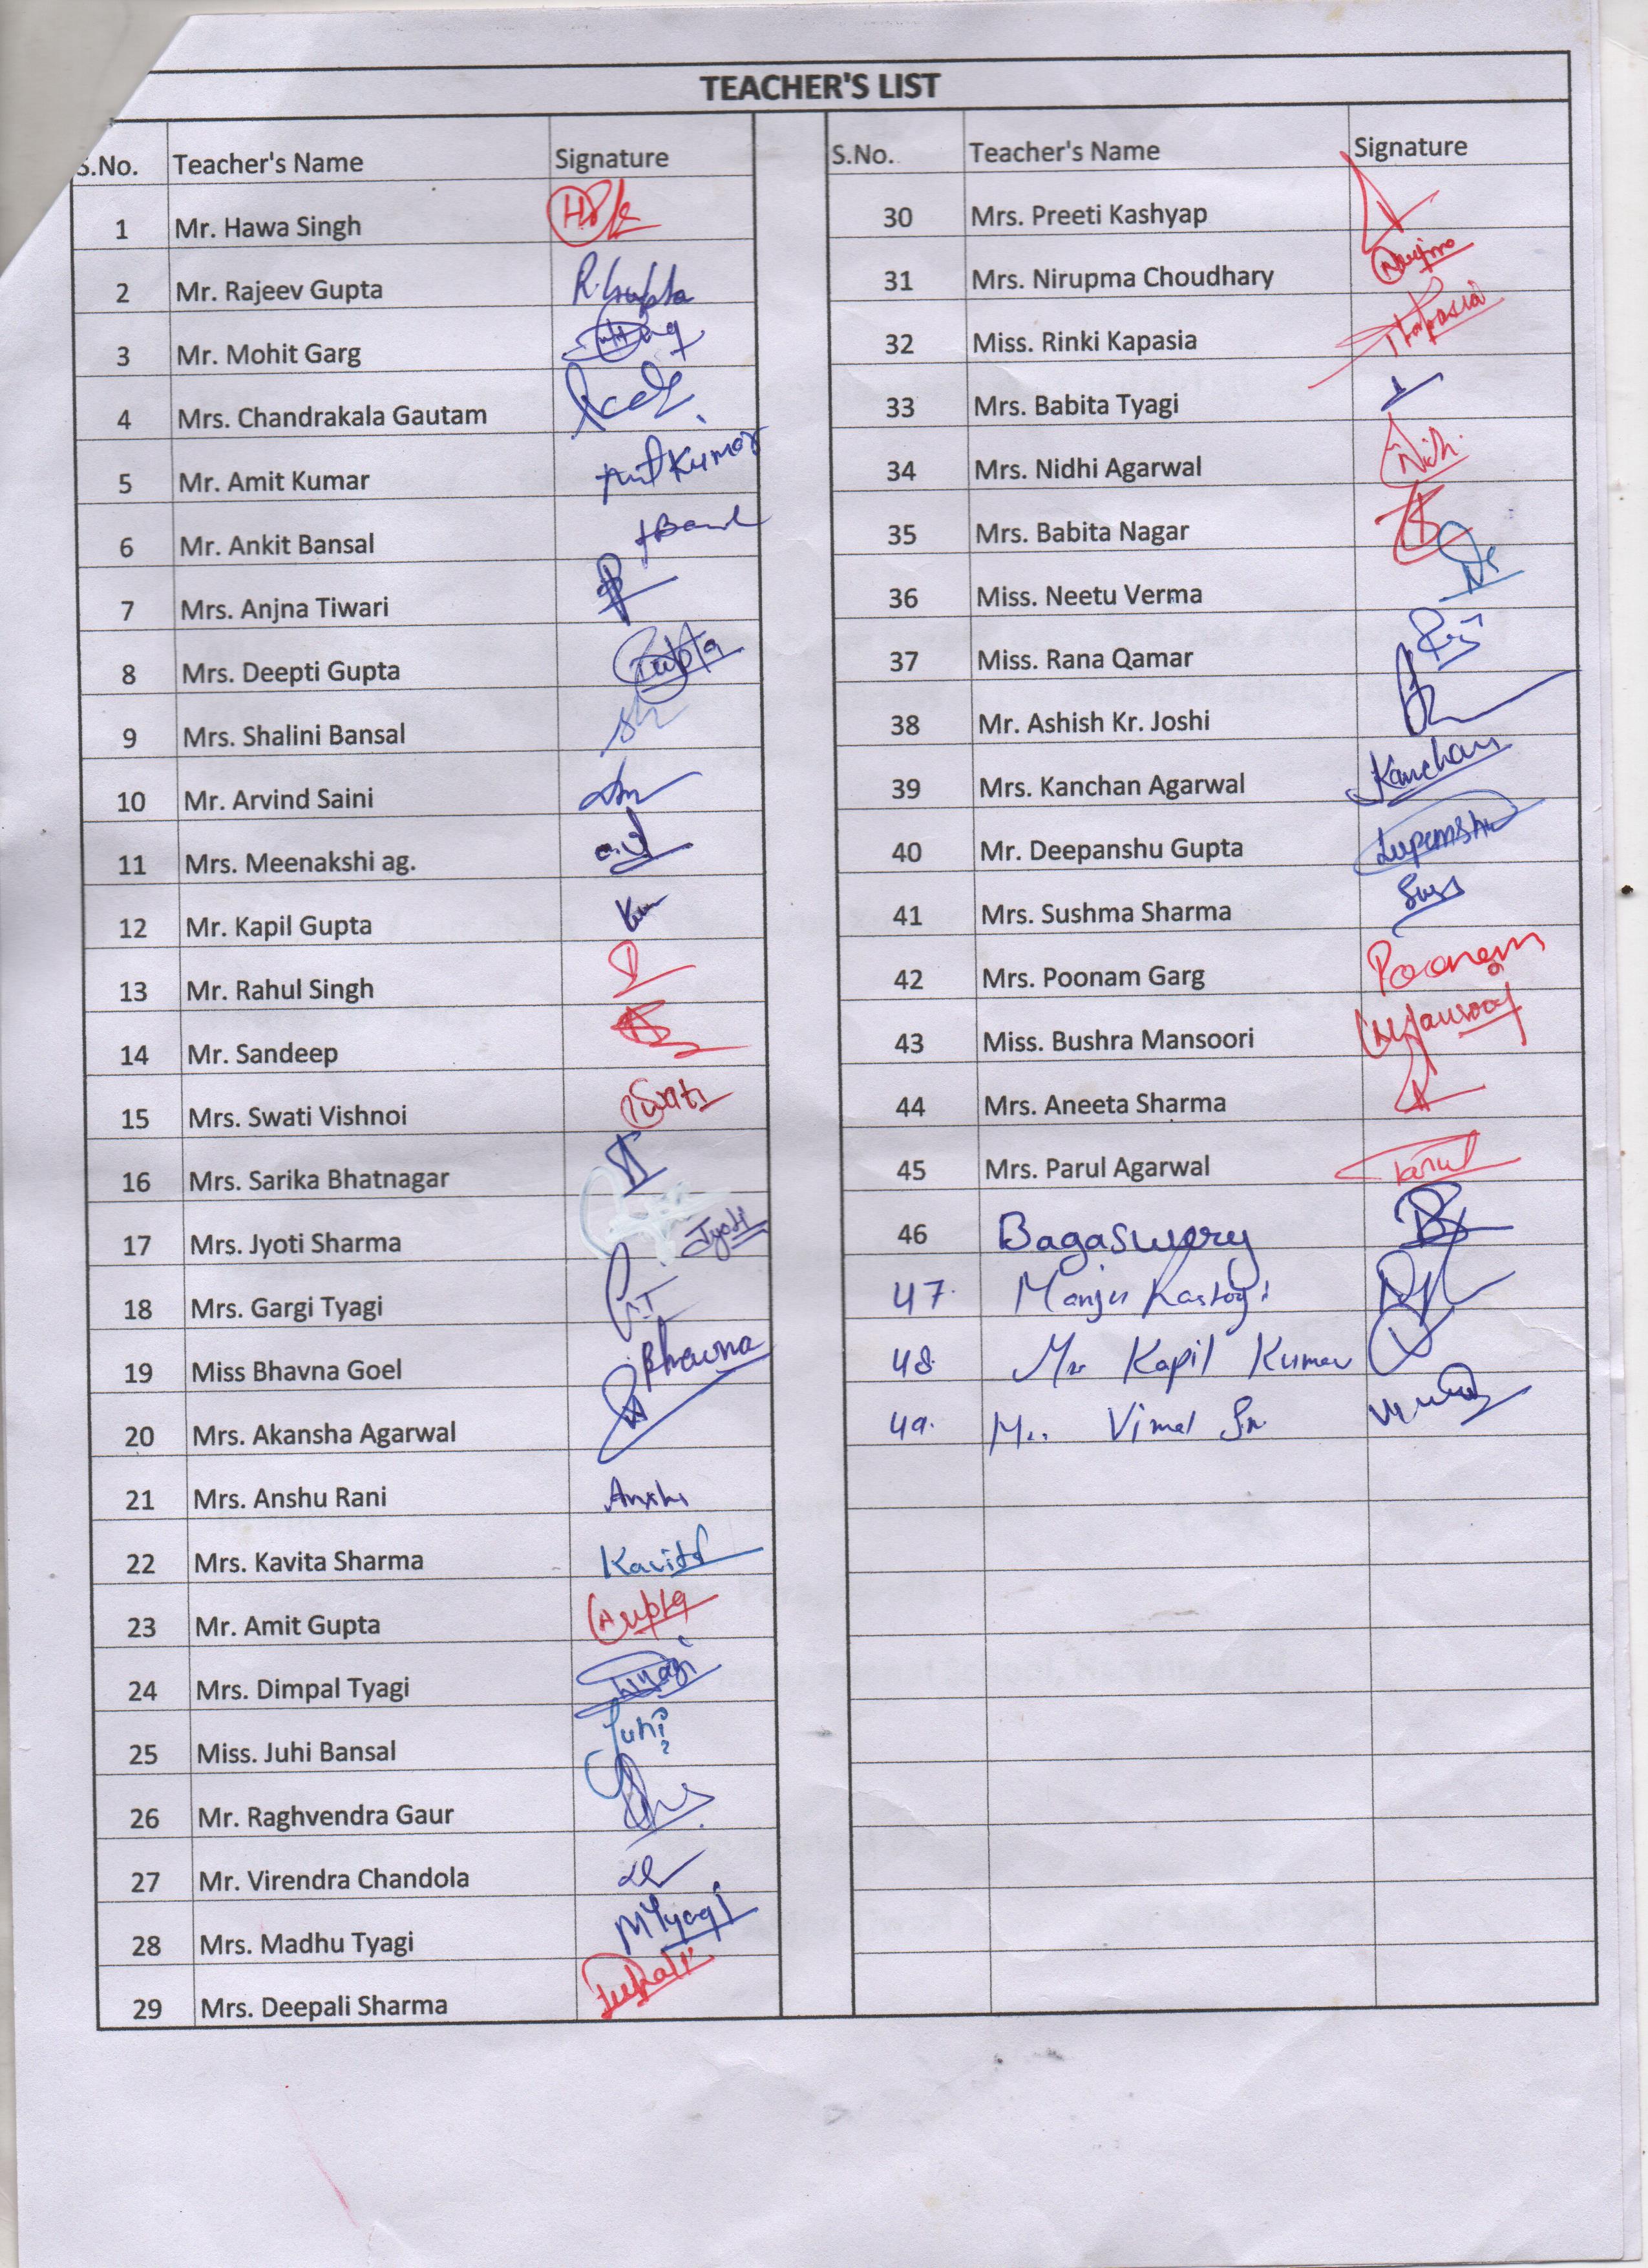 TEACHER'S LIST
S.No. Teacher's Name Signature
1 Mr. Hawa Singh
2 Mr. Rajeev Gupta R.Gupta
3 Mr. Mohit Garg
4 Mrs. Chandrakala Gautam
5 Mr. Amit Kumar Amit Kumar
6 Mr. Ankit Bansal
7 Mrs. Anjna Tiwari
8 Mrs. Deepti Gupta Gupta
9 Mrs. Shalini Bansal
10 Mr. Arvind Saini
11 Mrs. Meenakshi ag.
12 Mr. Kapil Gupta
13 Mr. Rahul Singh
14 Mr. Sandeep
15 Mrs. Swati Vishnoi Swati
16 Mrs. Sarika Bhatnagar
17 Mrs. Jyoti Sharma Jyoti
18 Mrs. Gargi Tyagi
19 Miss Bhavna Goel Bhavna
20 Mrs. Akansha Agarwal
21 Mrs. Anshu Rani Anshu
22 Mrs. Kavita Sharma Kavita
23 Mr. Amit Gupta AGupta
24 Mrs. Dimpal Tyagi
25 Miss. Juhi Bansal Juhi
26 Mr. Raghvendra Gaur
27 Mr. Virendra Chandola
28 Mrs. Madhu Tyagi MTyagi
29 Mrs. Deepali Sharma Deepali
S.No. Teacher's Name Signature
30 Mrs. Preeti Kashyap
31 Mrs. Nirupma Choudhary
32 Miss. Rinki Kapasia Kapasia
33 Mrs. Babita Tyagi
34 Mrs. Nidhi Agarwal Nidhi
35 Mrs. Babita Nagar
36 Miss. Neetu Verma
37 Miss. Rana Qamar
38 Mr. Ashish Kr. Joshi
39 Mrs. Kanchan Agarwal Kanchan
40 Mr. Deepanshu Gupta Deepanshu
41 Mrs. Sushma Sharma
42 Mrs. Poonam Garg Poonam
43 Miss. Bushra Mansoori
44 Mrs. Aneeta Sharma
45 Mrs. Parul Agarwal Parul
46 Bagaswery
47. Manju Rastogi
48. Mr Kapil Kumar
49. Mr. Vimal Sr.